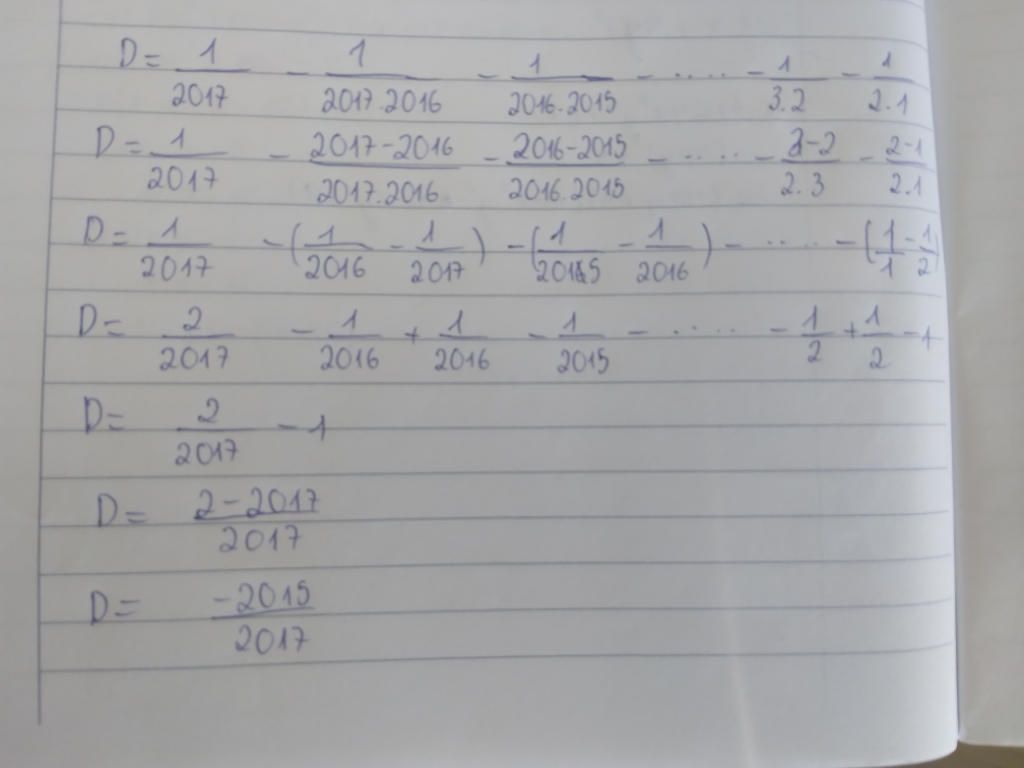 D = 1/2017 - 1/2017.2016 - 1/2016.2015 - ..... - 1/3.2 - 1/2.1
D = 1/2017 - 2017-2016/2017.2016 - 2016-2015/2016.2015 - ..... - 3-2/2.3 - 2-1/2.1
D = 1/2017 - (1/2016 - 1/2017) - (1/2015 - 1/2016) - ..... - (1/1 - 1/2)
D = 2/2017 - 1/2016 + 1/2016 - 1/2015 - ..... - 1/2 + 1/2 - 1
D = 2/2017 - 1
D = 2-2017/2017
D = -2015/2017